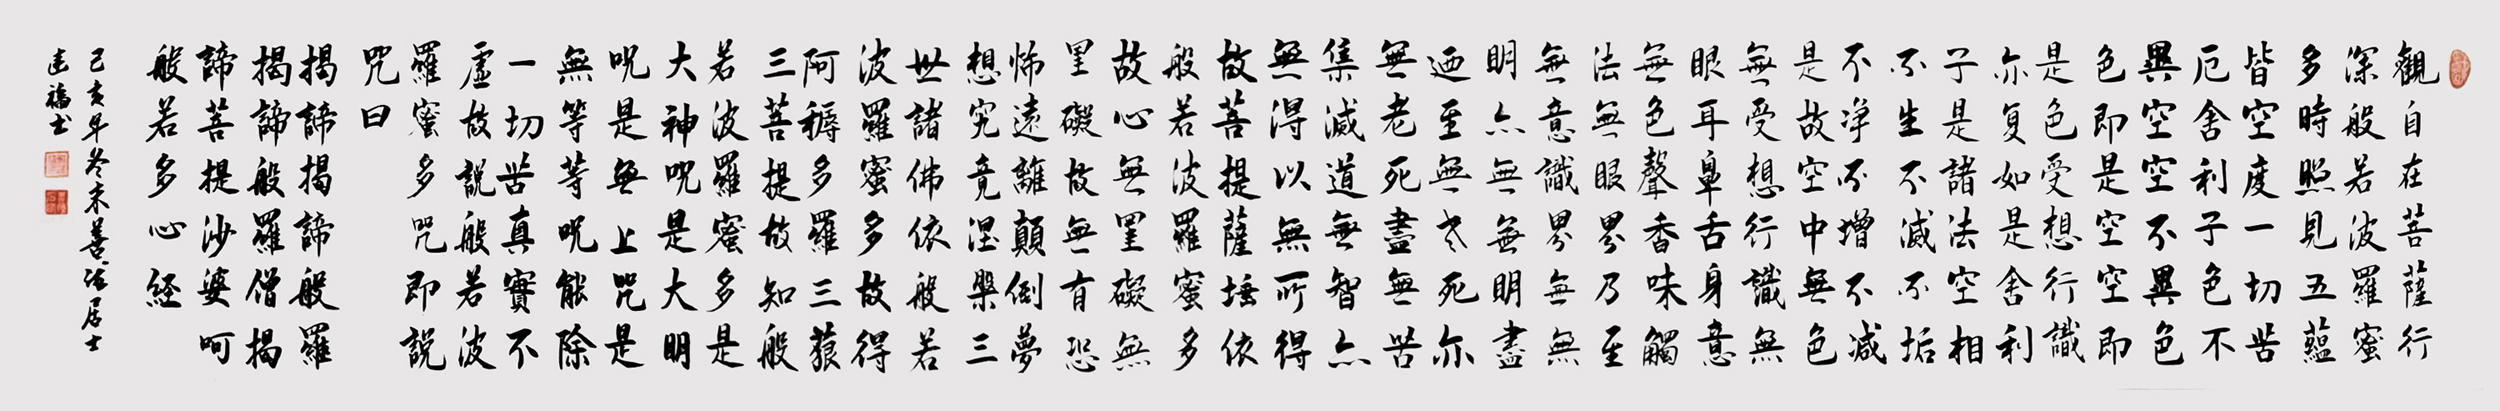 觀自在菩薩行
深般若波羅蜜
多時照見五蘊
皆空度一切苦
厄舍利子色不
異空空不異色
色即是空空即
是色受想行識
亦复如是舍利
子是諸法空相
不生不滅不垢
不淨不增不减
是故空中無色
無受想行識無
眼耳鼻舌身意
無色聲香味觸
法無眼界乃至
無意識界無無
明亦無無明盡
廼至無老死亦
無老死盡無苦
集滅道無智亦
無得以無所得
故菩提薩埵依
般若波羅蜜多
故心無罣礙無
罣礙故無有恐
怖遠離顛倒夢
想究竟涅槃三
世諸佛依般若
波羅蜜多故得
阿耨多羅三藐
三菩提故知般
若波羅蜜多是
大神呪是大明
呪是無上咒是
無等等呪能除
一切苦真實不
虛故説般若波
羅蜜多咒即説
咒曰
揭諦揭諦般羅
揭諦般羅僧揭
諦菩提沙婆呵
般若多心経
己亥年冬末善法居士
福书